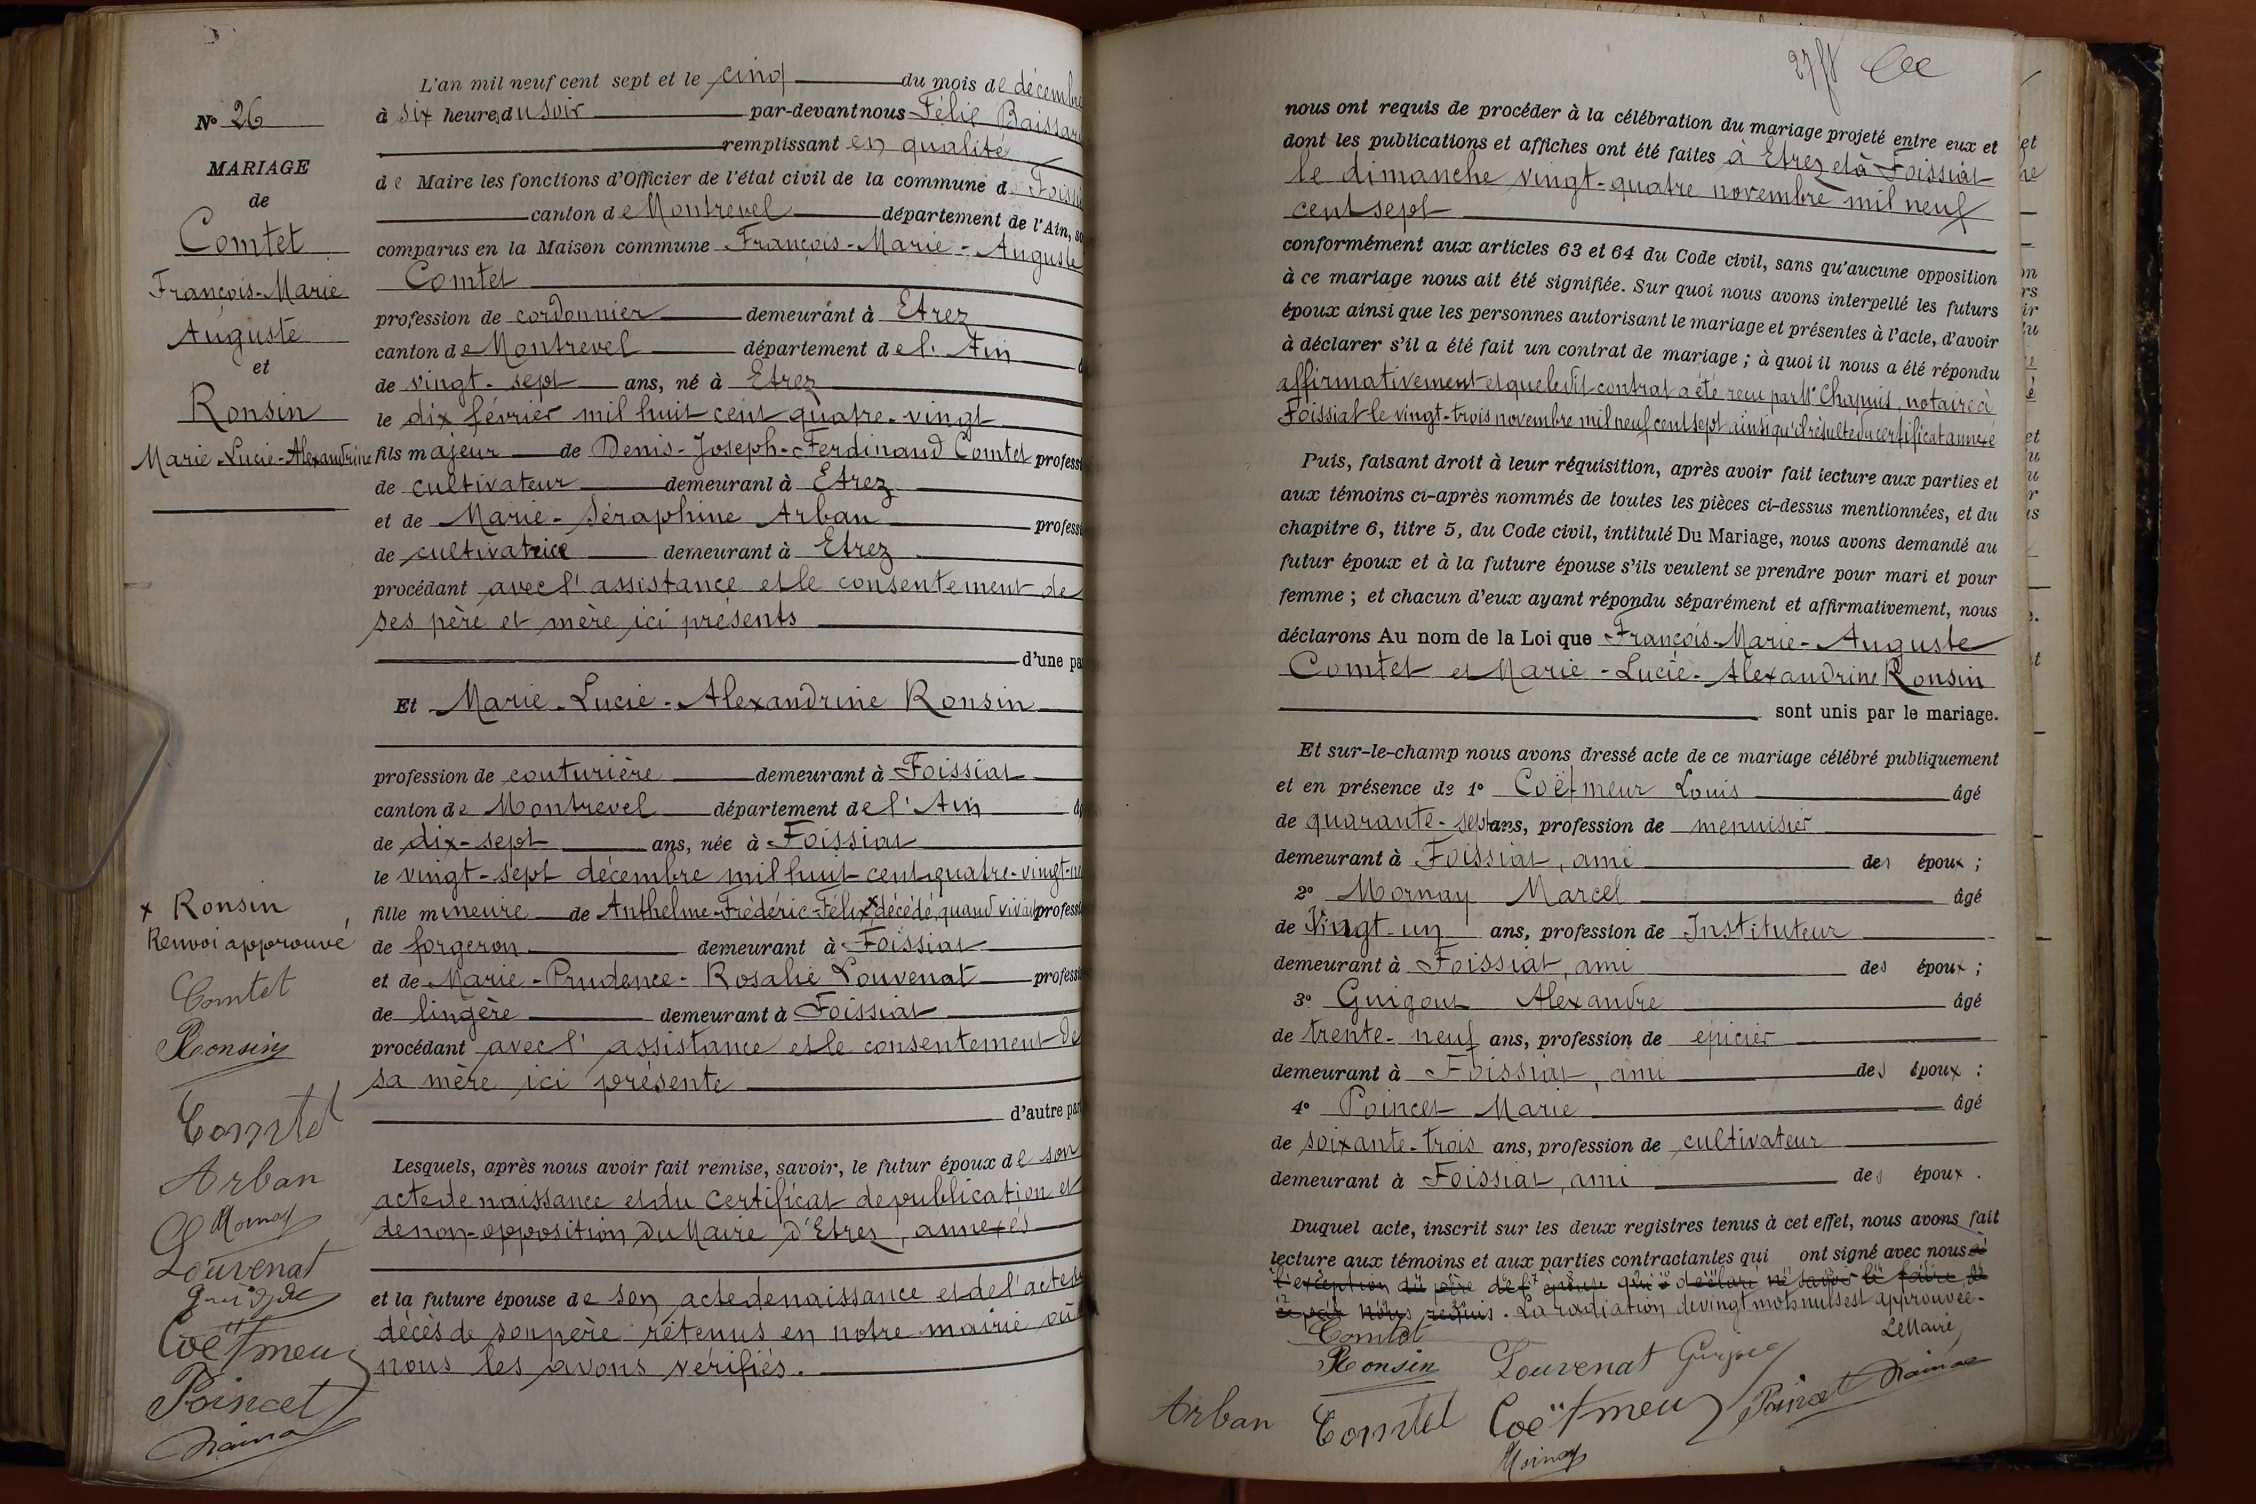 N° 26
MARIAGE
de
Comtet
François-Marie
Auguste
et
Ronsin
Marie-Lucie-Alexandrine
L'an mil neuf cent sept et le cinq du mois de décembre
à six heures du soir par-devant nous Félix
remplissant en qualité
de Maire les fonctions d'Officier de l'état civil de la commune de
canton de Montrevel département de l'Ain,
comparus en la Maison commune François-Marie-Auguste
Comtet
profession de cordonnier demeurant à Etrez
canton de Montrevel département de l'Ain
de vingt-sept ans, né à Etrez
le dix février mil huit cent quatre-vingt
fils majeur de Denis-Joseph-Ferdinand Comtet profess
de cultivateur demeurant à Etrez
et de Marie-Séraphine Arban profess
de cultivatrice demeurant à Etrez
procédant avec l'assistance et le consentement de
ses père et mère ici présents
d'une pa
Et Marie-Lucie-Alexandrine Ronsin
profession de couturière demeurant à Foissiat
canton de Montrevel département de l'Ain
de dix-sept ans, née à Foissiat
le vingt-sept décembre mil huit cent quatre-vingt-
fille mineure de Anthelme-Frédéric-Félix x décédé, quand vivait profess
de forgeron demeurant à Foissiat
et de Marie-Prudence-Rosalie Louvenat profess
de lingère demeurant à Foissiat
procédant avec l'assistance et le consentement de
sa mère ici présente
d'autre par
Lesquels, après nous avoir fait remise, savoir, le futur époux de son
acte de naissance et du certificat de publication et
de non-opposition du Maire d'Etrez, annexés
et la future épouse de son acte de naissance et de l'acte de
décès de son père retenus en notre mairie où
nous les avons vérifiés.
x Ronsin
Renvoi approuvé
Comtet
Ronsin
Comtet
Arban
Mornay
Louvenat
Coëtmeur
Poincet
nous ont requis de procéder à la célébration du mariage projeté entre eux et
dont les publications et affiches ont été faites à Etrez et à Foissiat
le dimanche vingt-quatre novembre mil neuf
cent sept
conformément aux articles 63 et 64 du Code civil, sans qu'aucune opposition
à ce mariage nous ait été signifiée. Sur quoi nous avons interpellé les futurs
époux ainsi que les personnes autorisant le mariage et présentes à l'acte, d'avoir
à déclarer s'il a été fait un contrat de mariage ; à quoi il nous a été répondu
affirmativement et que ledit contrat a été reçu par Me Chapuis, notaire à
Foissiat le vingt-trois novembre mil neuf cent sept ainsi qu'il résulte du certificat annexé
Puis, faisant droit à leur réquisition, après avoir fait lecture aux parties et
aux témoins ci-après nommés de toutes les pièces ci-dessus mentionnées, et du
chapitre 6, titre 5, du Code civil, intitulé Du Mariage, nous avons demandé au
futur époux et à la future épouse s'ils veulent se prendre pour mari et pour
femme ; et chacun d'eux ayant répondu séparément et affirmativement, nous
déclarons Au nom de la Loi que François-Marie-Auguste
Comtet et Marie-Lucie-Alexandrine Ronsin
sont unis par le mariage.
Et sur-le-champ nous avons dressé acte de ce mariage célébré publiquement
et en présence de 1° Coëtmeur Louis âgé
de quarante-sept ans, profession de menuisier
demeurant à Foissiat, ami des époux ;
2° Mornay Marcel âgé
de vingt-un ans, profession de Instituteur
demeurant à Foissiat, ami des époux ;
3° Guigout Alexandre âgé
de trente-neuf ans, profession de épicier
demeurant à Foissiat, ami des époux :
4° Poincet Marie âgé
de soixante-trois ans, profession de cultivateur
demeurant à Foissiat, ami des époux.
Duquel acte, inscrit sur les deux registres tenus à cet effet, nous avons fait
lecture aux témoins et aux parties contractantes qui ont signé avec nous à
l'exception du père de l'épouse qui a déclaré ne savoir le faire, de
ce par nous requis. La radiation de vingt mots nuls est approuvée.
Le Maire
Comtet
Ronsin
Louvenat
Arban
Comtet
Coëtmeur
Poincet
Mornay